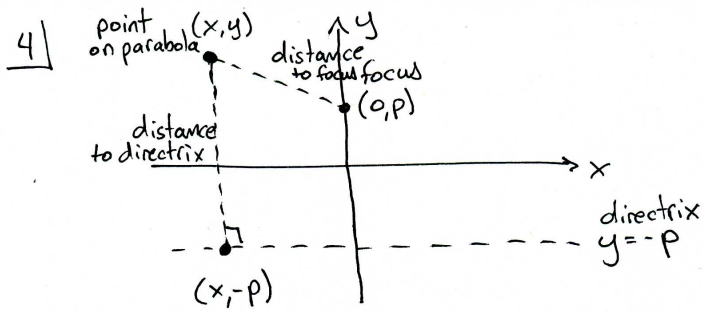 4
point (x,y)
on parabola
y
distance
to focus focus
(0,p)
distance
to directrix
x
directrix
y=-p
(x,-p)